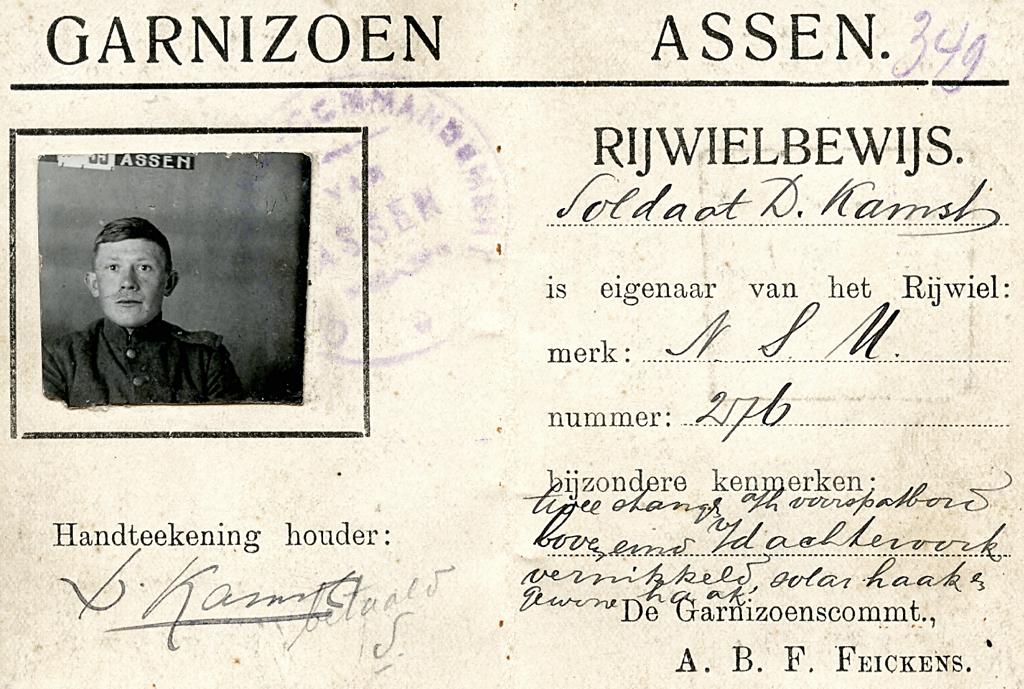 GARNIZOEN ASSEN. 349
ASSEN
COMMANDEMENT
VAN
ASSEN
Handteekening houder:
D. Kamst
betaald
RIJWIELBEWIJS.
Soldaat D. Kamst
is eigenaar van het Rijwiel:
merk: N. S. U.
nummer: 276
bijzondere kenmerken:
twee stang voorspatbord
boveneind v/d achtervork
vernikkeld, solar haak &
gewone haak.
De Garnizoenscommt.,
A. B. F. FEICKENS.